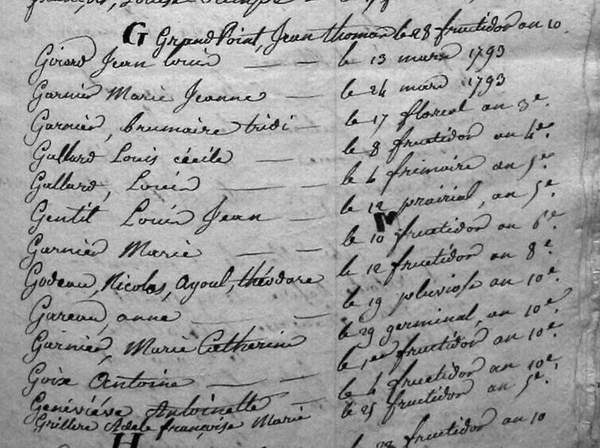 G GrandPoint, Jean thomas le 28 fructidor an 10.
Girard Jean Louis — — le 13 mars 1793
Garnier Marie Jeanne — le 24 mars 1793
Garnier, brumaire tridi — le 17 floreal an 3e.
Gallard Louis cécile — le 8 fructidor an 4e.
Gallard, Louis — — le 4 frimaire an 5e.
Gentil Louis Jean — le 12 prairial, an 5e.
Garnier Marie — — le 10 fructidor an 6e.
Godeau, Nicolas, ayoul, théodore le 12 fructidor an 8e.
Gareau, anne — — le 19 pluviose an 10e.
Garnier, Marie Catherine le 29 germinal, an 10e.
Goix Antoine — — le 1er fructidor an 10e.
Geneviéve Antoinette — le 4 fructidor an 10e.
Grillere Adele françoise Marie le 25 fructidor an 5e.
H fructidor an 10